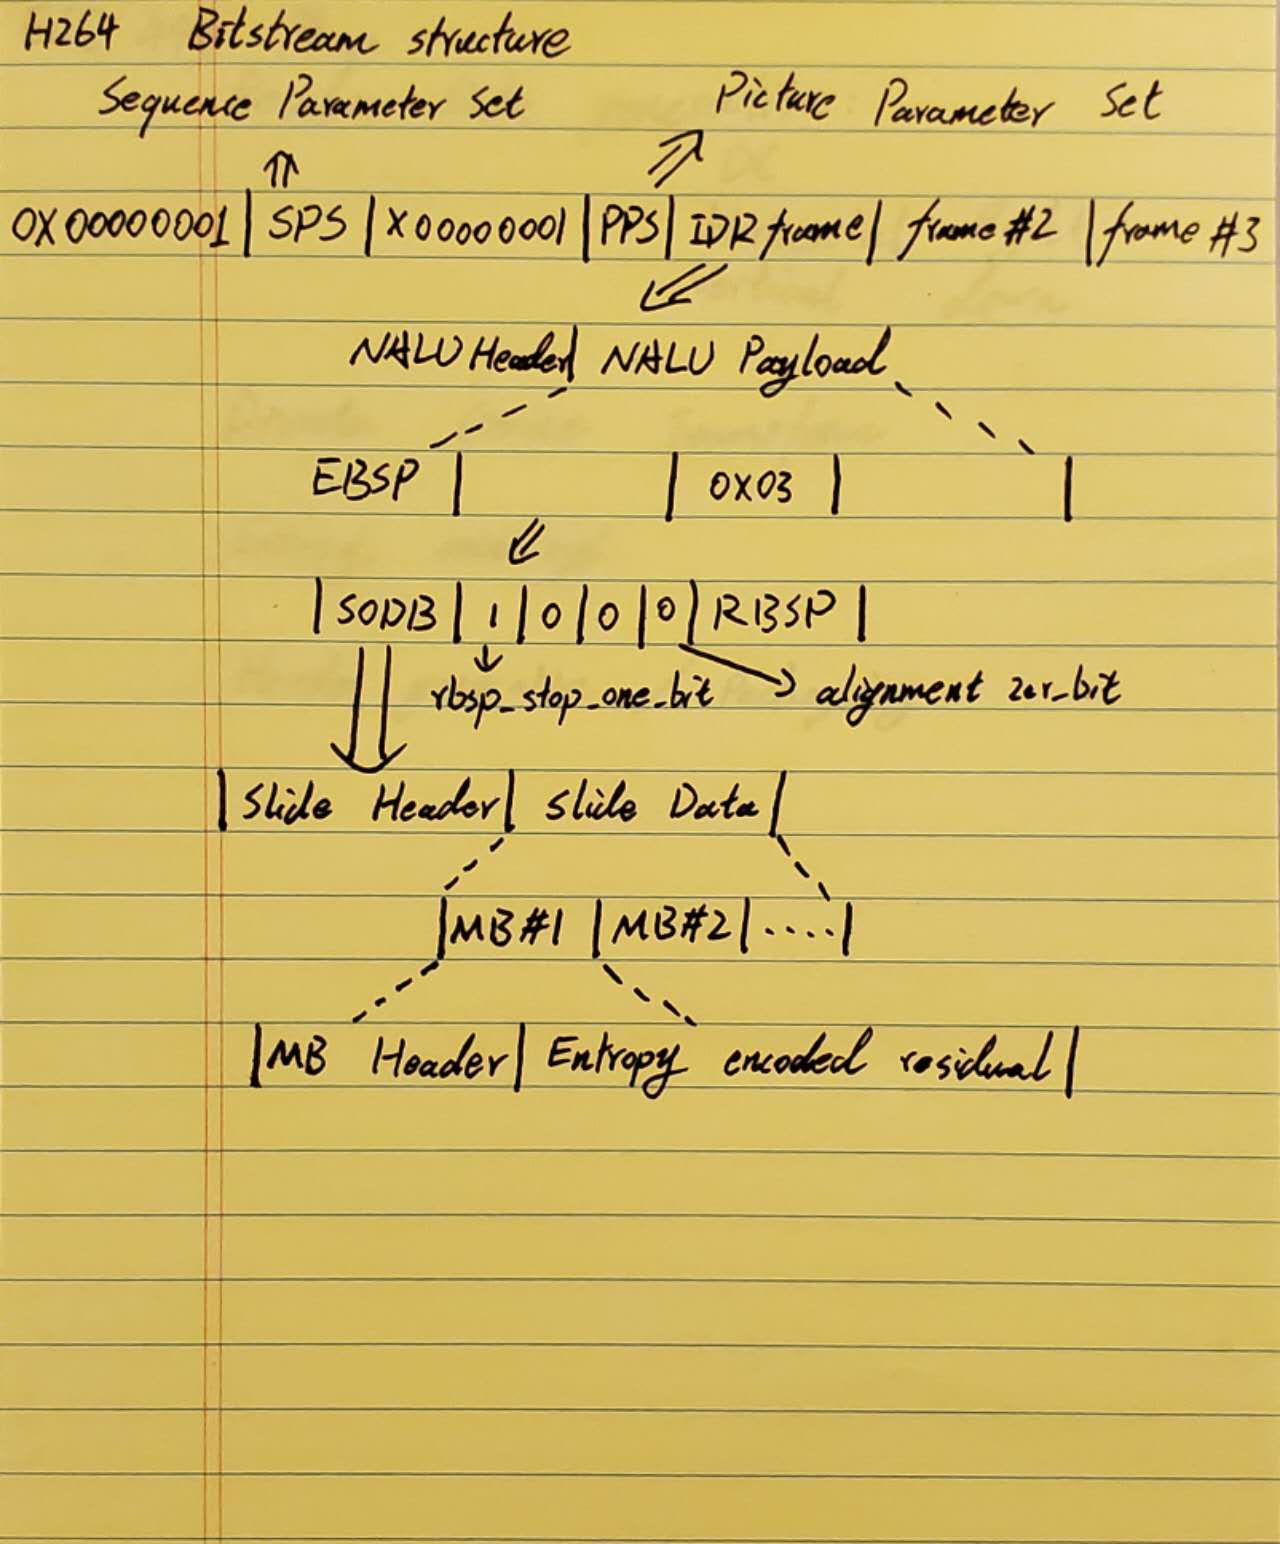 H264 Bitstream structure
Sequence Parameter Set Picture Parameter Set
0X00000001 | SPS | X00000001 | PPS | IDR frame | frame #2 | frame #3
NALU Header | NALU Payload
EBSP | | 0X03 | |
| SODB | 1 | 0 | 0 | 0 | RBSP |
rbsp_stop_one_bit alignment zer_bit
| Slide Header | Slide Data |
| MB#1 | MB#2 | .... |
| MB Header | Entropy encoded residual |